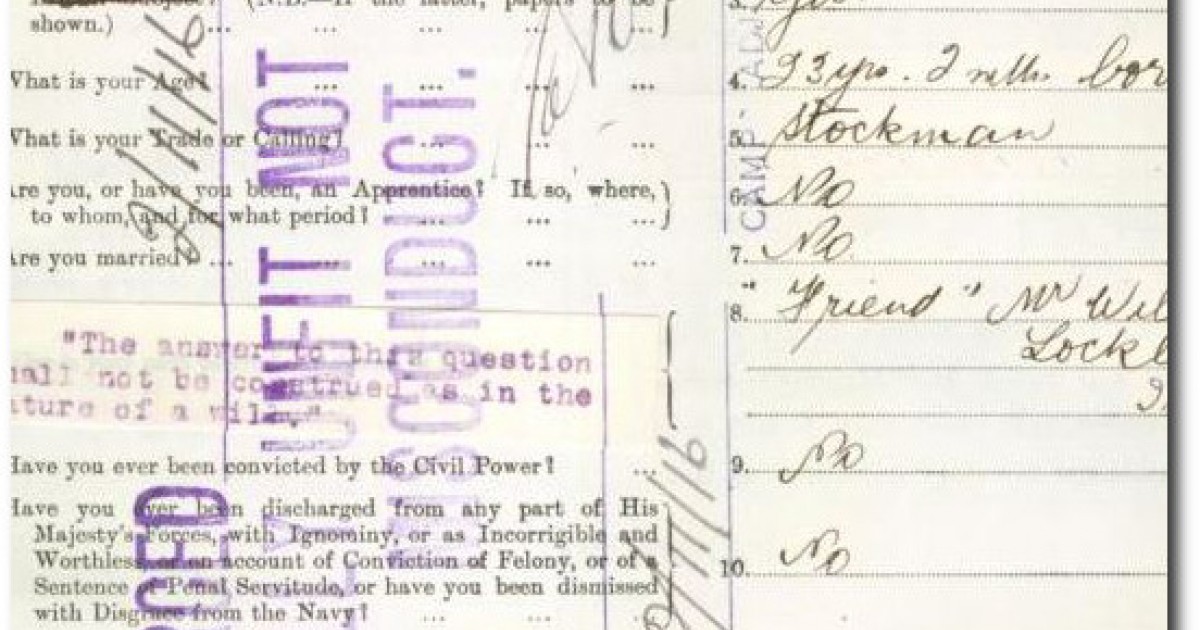 subject? (N.B.—If the latter, papers to be
shown.) ... ... ... ...
What is your Age? ... ... ...
4. 23 yrs. 2 mths. bor
What is your Trade or Calling? ... ... ...
5. Stockman
Are you, or have you been, an Apprentice? If so, where,
to whom, and for what period? ... ... ...
6. No
Are you married? ... ... ... ... ...
7. No.
8. "Friend" Mr Wil
Lockl
"The answer to this question
hall not be construed as in the
ature of a will."
Have you ever been convicted by the Civil Power? ...
9. No
Have you ever been discharged from any part of His
Majesty's Forces, with Ignominy, or as Incorrigible and
Worthless, or on account of Conviction of Felony, or of a
Sentence of Penal Servitude, or have you been dismissed
with Disgrace from the Navy? ... ... ...
10. No
UNFIT NOT
MISCONDUCT.
CAMP ADJ